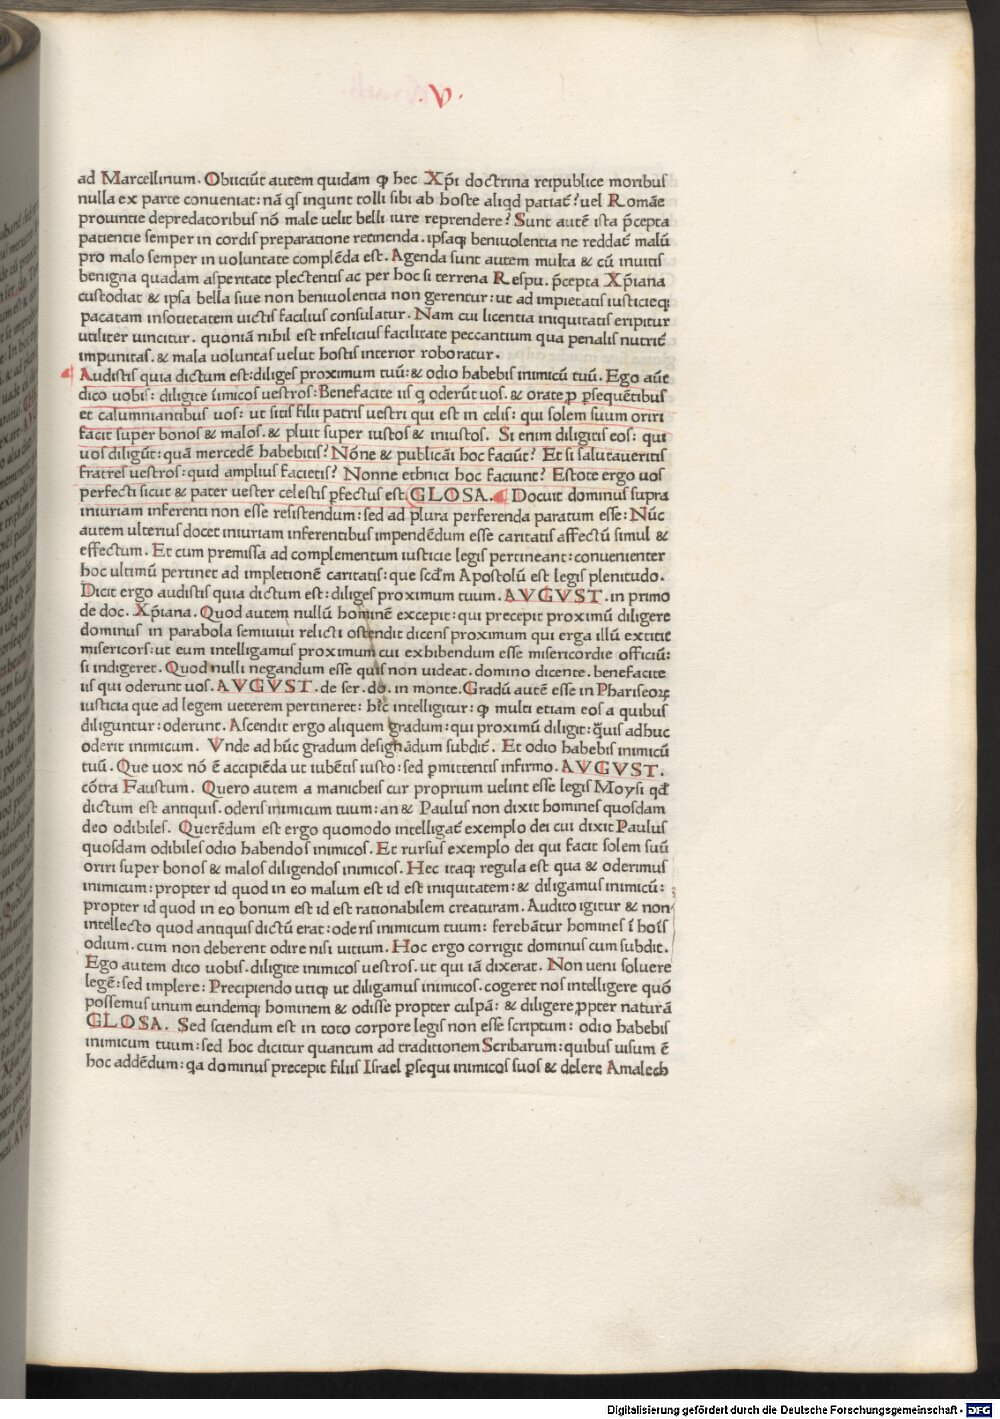 .V.
ad Marcellinum. Obiiciūt autem quidam ꝙ hec Xp̄i doctrina reipublice moribus
nulla ex parte conveniat: nā qͥs inqunt tolli sibi ab hoste aliqd patiat᷑? uel Romāe
prouintie depredatoribus nō male uelit belli iure reprendere? Sunt autē ista p̄cepta
patientie semper in cordis preparatione retinenda. ipsaqꝫ beniuolentia ne reddat᷑ malū
pro malo semper in uoluntate complēda est. Agenda sunt autem multa & cū inuitis
benigna quadam asperitate plectentis ac per hoc si terrena Respu. p̄cepta Xp̄iana
custodiat & ipsa bella siue non beniuolentia non gerentur: ut ad impietatis iusticieqꝫ
pacatam insotietatem uictis facilius consulatur. Nam cui licentia iniquitatis eripitur
utiliter uincitur. quoniā nihil est infelicius facilitate peccantium qua penalis nutrit᷑
impunitas. & mala uoluntas uelut hostis interior roboratur.
Audistis quia dictum est: diliges proximum tuū: & odio habebis inimicū tuū. Ego aūt
dico uobis: diligite īimicos uestros: Benefacite iis q oderūt uos. & orate ꝓ ꝑsequētibus
et calumniantibus uos: ut sitis filii patris uestri qui est in celis: qui solem suum oriri
facit super bonos & malos. & pluit super iustos & iniustos. Si enim diligitis eos: qui
uos diligūt: quā mercedē habebitis? Nōne & publicāi hoc faciūt? Et si salutaveritis
fratres uestros: quid amplius facietis? Nonne ethnici hoc faciunt? Estote ergo uos
perfecti sicut & pater uester celestis ꝑfectus est GLOSA. Docuit dominus supra
iniuriam inferenti non esse resistendum: sed ad plura perferenda paratum esse: Nūc
autem ulterius docet iniuriam inferentibus impendēdum esse caritatis affectū simul &
effectum. Et cum premissa ad complementum iusticie legis pertineant: convenienter
hoc ultimū pertinet ad impletionē caritatis: que scd̄m Apostolū est legis plenitudo.
Dicit ergo audistis quia dictum est: diliges proximum tuum. AVGVST. in primo
de doc. Xp̄iana. Quod autem nullū hominē excepit: qui precepit proximū diligere
dominus in parabola semiuiui relicti ostendit dicens proximum qui erga illū extitit
misericors: ut eum intelligamus proximum cui exhibendum esse misericordie officiū:
si indigeret. Quod nulli negandum esse quis non uideat. domino dicente. benefacite
iis qui oderunt uos. AVGVST. de ser. do. in monte. Gradū autē esse in Phariseoꝝ
iusticia que ad legem ueterem pertineret: hīc intelligitur: ꝙ multi etiam eos a quibus
diliguntur: oderunt. Ascendit ergo aliquem gradum: qui proximū diligit: q̄uis adhuc
oderit inimicum. Vnde ad hūc gradum designādum subdit᷑. Et odio habebis inimicū
tuū. Que uox nō ē accipiēda ut iubētis iusto: sed ꝑmittentis infirmo. AVGVST.
cōtra Faustum. Quero autem a manicheis cur proprium uelint esse legis Moysi qđ
dictum est antiquis. oderis inimicum tuum: an & Paulus non dixit homines quosdam
deo odibiles. Querēdum est ergo quomodo intelligat᷑ exemplo dei cui dixit Paulus
quosdam odibiles odio habendos inimicos. Et rursus exemplo dei qui facit solem suū
oriri super bonos & malos diligendos inimicos. Hec itaqꝫ regula est qua & oderimus
inimicum: propter id quod in eo malum est id est iniquitatem: & diligamus inimicū:
propter id quod in eo bonum est id est rationabilem creaturam. Audito igitur & non
intellecto quod antiquis dictū erat: oderis inimicum tuum: ferebātur homines ī hois̄
odium. cum non deberent odire nisi uitium. Hoc ergo corrigit dominus cum subdit.
Ego autem dico uobis. diligite inimicos uestros. ut qui iā dixerat. Non ueni soluere
legē: sed implere: Precipiendo utiqꝫ ut diligamus inimicos. cogeret nos intelligere quō
possemus unum eundemqꝫ hominem & odisse propter culpā: & diligere ꝓpter naturā
GLOSA. Sed sciendum est in toto corpore legis non esse scriptum: odio habebis
inimicum tuum: sed hoc dicitur quantum ad traditionem Scribarum: quibus uisum ē
hoc addēdum: qa dominus precepit filiis Israel ꝑsequi inimicos suos & delere Amalech
Digitalisierung gefördert durch die Deutsche Forschungsgemeinschaft - DFG